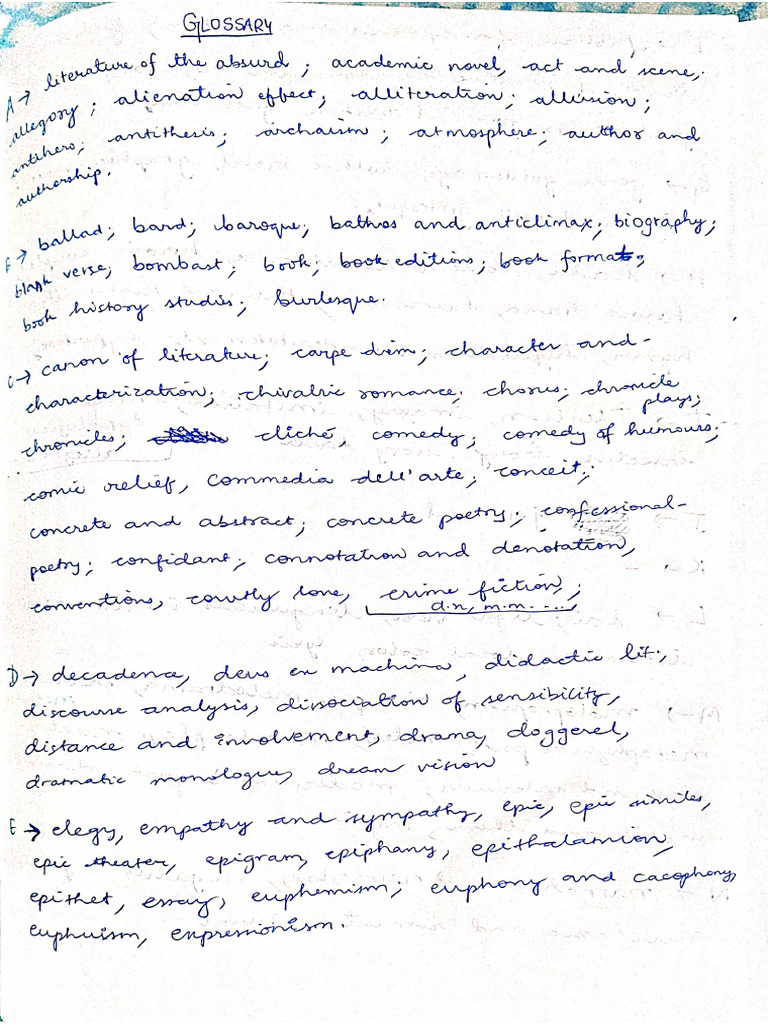 GLOSSARY
A → literature of the absurd ; academic novel, act and scene,
allegory ; alienation effect ; alliteration ; allusion ;
antihero ; antithesis ; archaism ; atmosphere ; author and
authorship.
ballad ; bard ; baroque ; bathos and anticlimax ; biography ;
blank verse ; bombast ; book ; book editions ; book formats ;
book history studies ; burlesque.
C → canon of literature ; carpe diem ; character and-
characterization ; chivalric romance ; chorus ; chronicle
plays ;
chronicles ; cliché, comedy ; comedy of humours ;
comic relief, commedia dell'arte ; conceit ;
concrete and abstract ; concrete poetry ; confessional-
poetry ; confidant ; connotation and denotation,
conventions, courtly love, crime fiction, ;
d.n, m.m. ....
D → decadence, deus ex machina, didactic lit.,
discourse analysis, dissociation of sensibility,
distance and involvement, drama, doggerel,
dramatic monologue, dream vision
E → elegy, empathy and sympathy, epic, epic similes,
epic theater, epigram, epiphany, epithalamion,
epithet, essay, euphemism ; euphony and cacophony,
euphuism, expressionism.